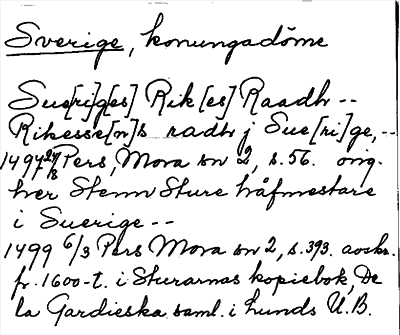 Sverige, konungadöme
Sue[ri]g[es] Rik[es] Raadh --
Rikesse[n]s radh j Sue[ri]ge, --
1497 24/8 Pers, Mora sn 2, s. 56. orig.
her Stenn Sture håfmestare
i Suerige --
1499 6/3 Pers Mora sn 2, s. 393. avskr.
fr. 1600-t. i Sturarnas kopiebok, De
la Gardieska saml. i Lunds U.B.